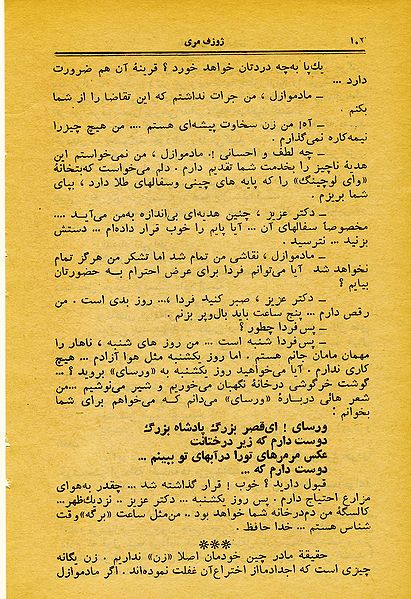 ۱۰۲
ژوزف مری
یك‌پا به‌چه دردتان خواهد خورد ؟ قرینهٔ آن هم ضرورت
دارد ...
ـ مادموازل ، من جرات نداشتم که این تقاضا را از شما
بکنم .
ـ آه! من زن سخاوت پیشه‌ای هستم .... من هیچ چیزرا
نیمه‌کاره نمی‌گذارم .
ـ چه لطف و احسانی !. مادموازل ، من نمی‌خواستم این
هدیهٔ ناچیز را بخدمت شما تقدیم دارم . دلم می‌خواست که‌بتخانهٔ
«وآی لوچینگ» را که پایه های چینی وسفالهای طلا دارد ، بپای
شما بریزم .
ـ دکتر عزیز ، چنین هدیه‌ای بی‌اندازه به‌من می‌آیـد ....
مخصوصاً سفالهای آن ... آیا پایم را خوب قرار داده‌ام ... دستش
بزنید ... نترسید .
ـ مادموازل ، نقاشی من تمام شد اما تشکر من هرگز تمام
نخواهد شد آیا می‌توانم فردا برای عرض احترام بــه حضورتان
بیایم ؟
ـ دکتر عزیز ، صبر کنید فردا ،... روز بدی است . من
رقص دارم ... پنج ساعت باید بال‌وپر بزنم .
ـ پس‌فردا چطور ؟
ـ پس‌فردا شنبه است ... من روز های شنبه ، ناهار را
مهمان مامان جانم هستم . اما روز یکشنبه مثل هوا آزادم ... هیچ
کاری ندارم . آیا می‌خواهید روز یکشنبه به «ورسای» بروید ؟ ...
گوشت خرگوشی درخانهٔ نگهبان می‌خوریم و شیر می‌نوشیم ...من
شعر هائی دربــارهٔ «ورسای» می‌دانم کــه می‌خواهم برای شما
بخوانم :
ورسای ! ای‌قصر بزرگ پادشاه بزرگ
دوست دارم که زیر درختانت
عکس مرمرهای تورا درآبهای تو ببینم ...
دوست دارم که ...
قبول دارید ؟ خوب ! قرار گذاشته شد ... چقدر به‌هوای
مزارع احتیاج دارم . پس روز یکشنبه ... دکتر عزیز .. نزدیك‌ظهر...
کالسکهٔ من دم‌درخانه شما خواهد بود .. من‌مثل ساعت «برگه»وقت
شناس هستم ... خدا حافظ .
***
حقیقهٔ مادر چین خودمان اصلا «زن» نداریم . زن یگانه
چیزی است که اجدادماا‌ز اختراع‌آن غفلت نموده‌اند . اگر مادموازل